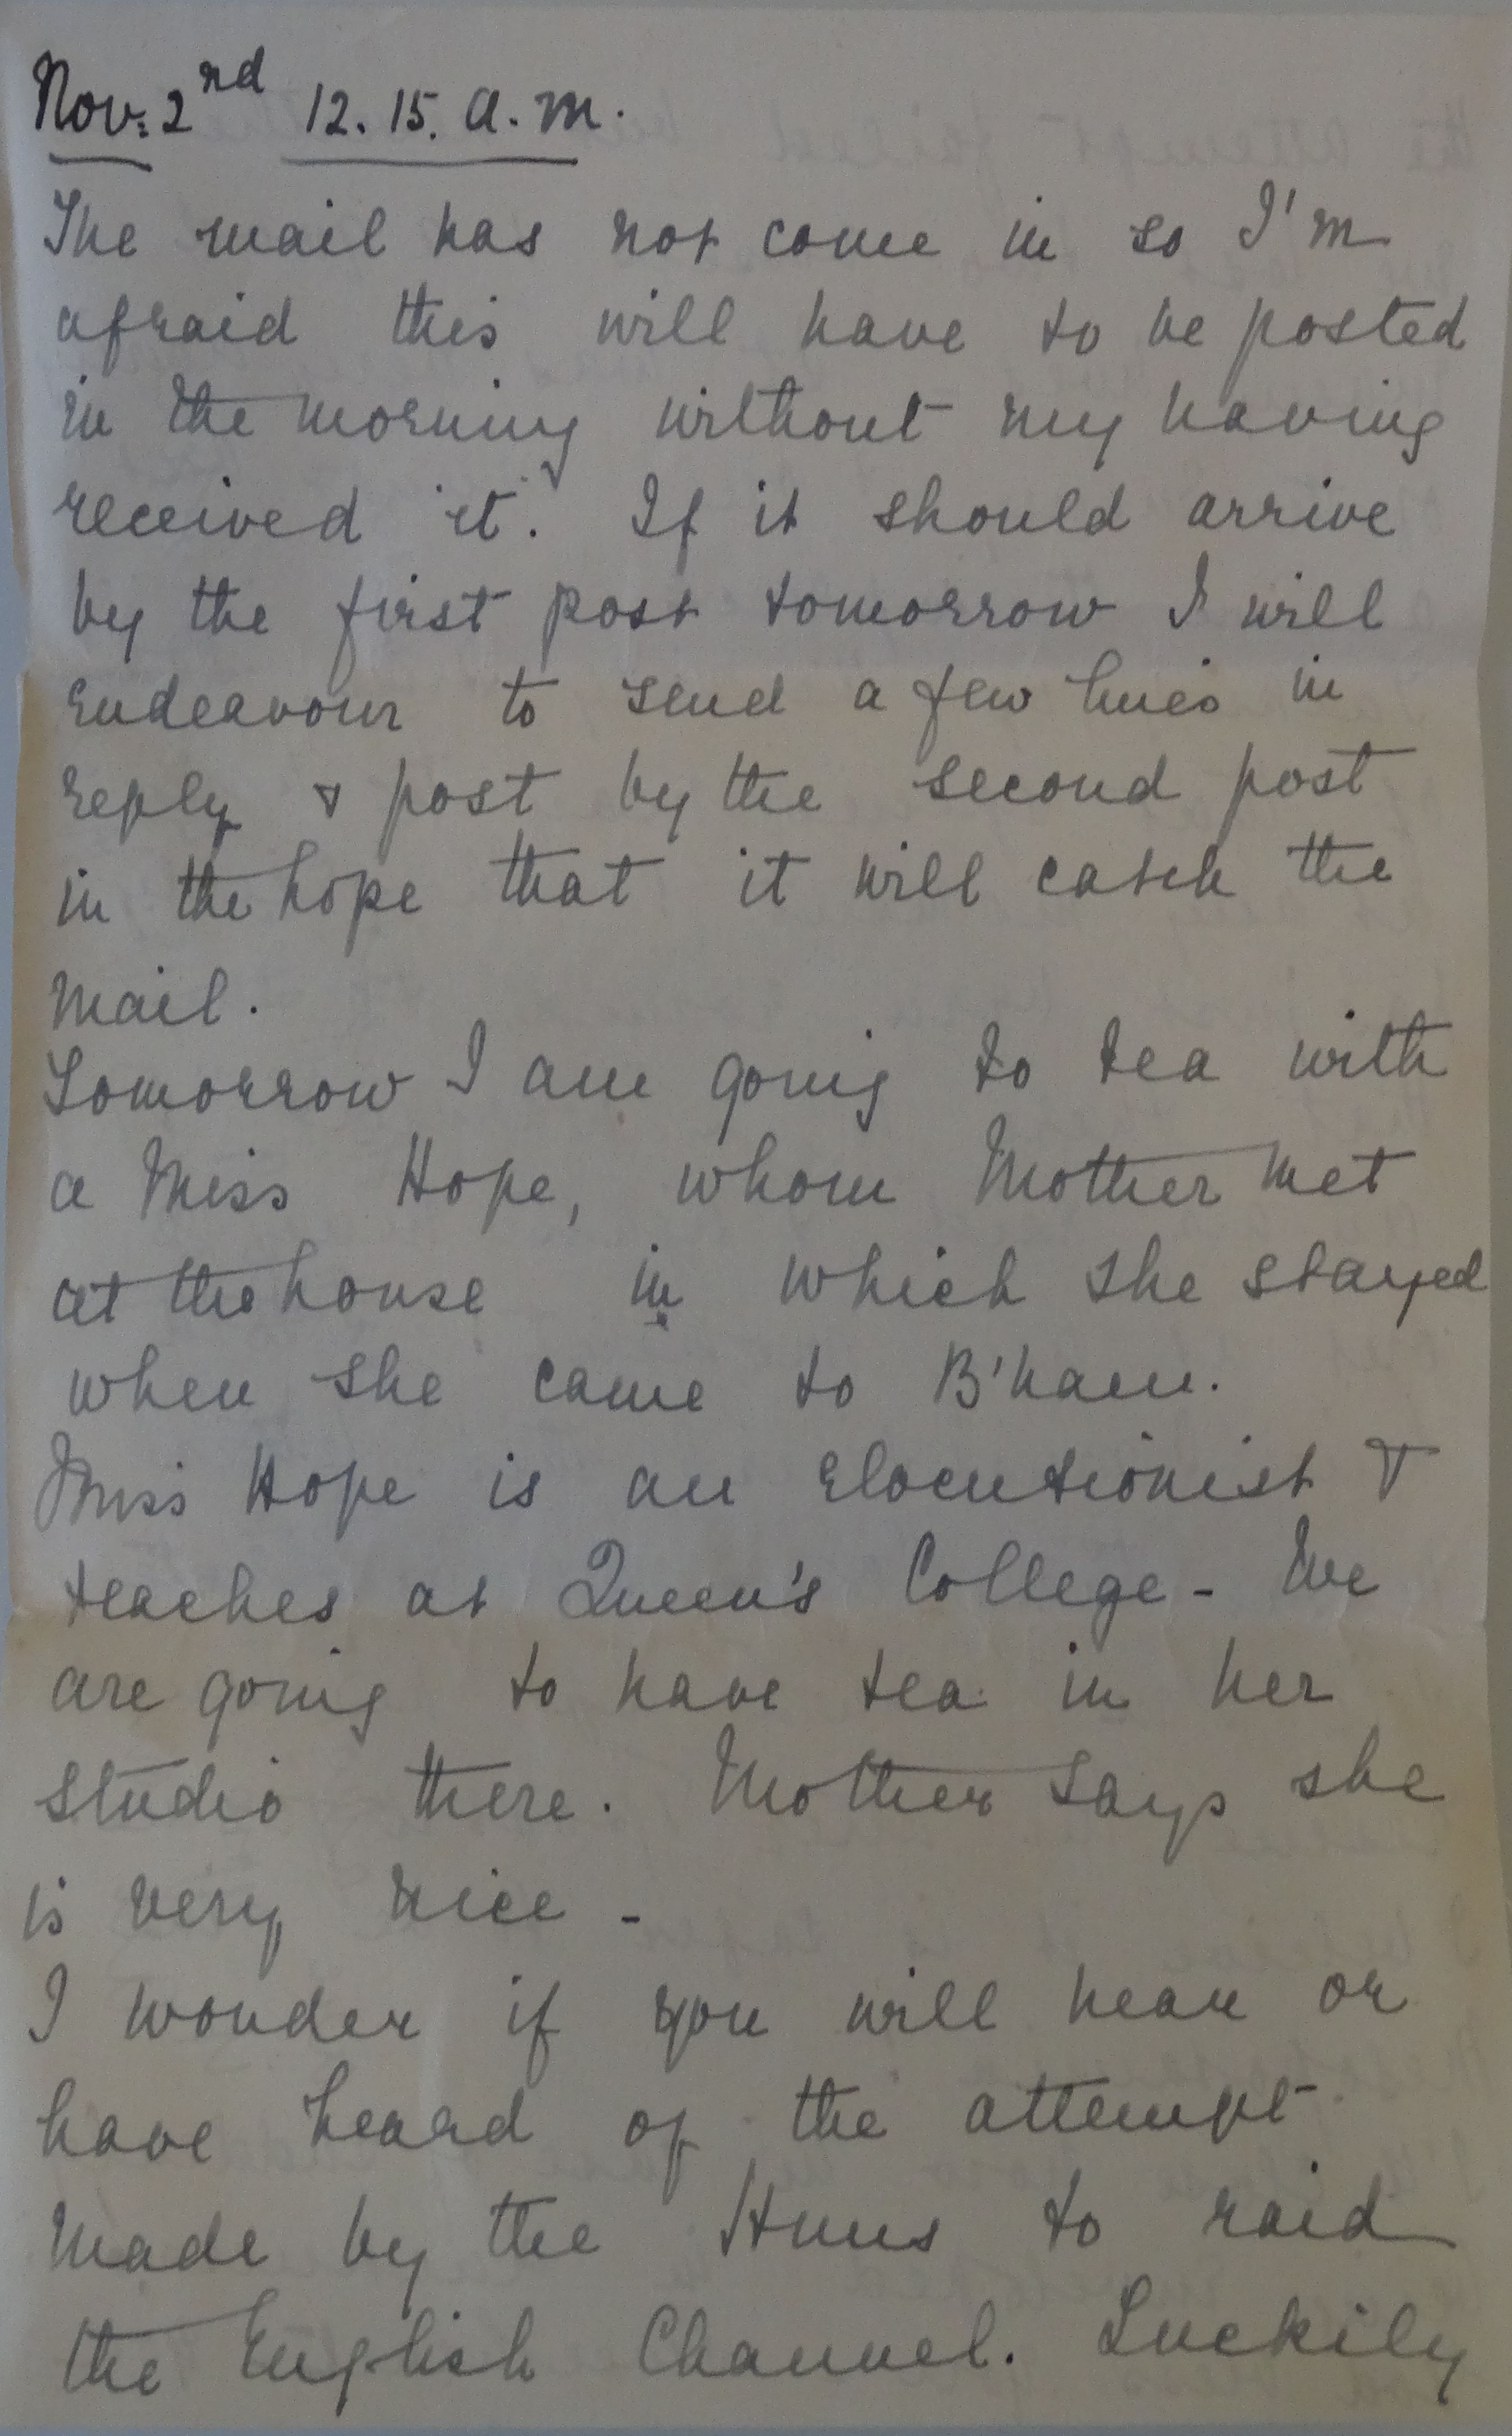 Nov: 2nd 12.15. a.m.
The mail has not come in so I'm
afraid this will have to be posted
in the morning without my having
received it. If it should arrive
by the first post tomorrow I will
endeavour to send a few lines in
reply & post by the second post
in the hope that it will catch the
mail.
Tomorrow I am going to tea with
a Miss Hope, whom Mother met
at the house in which she stayed
when she came to B'ham.
Miss Hope is an elocutionist &
teaches at Queen's College - We
are going to have tea in her
studio there. Mother says she
is very nice -
I wonder if you will hear or
have heard of the attempt
made by the Huns to raid
the English Channel. Luckily